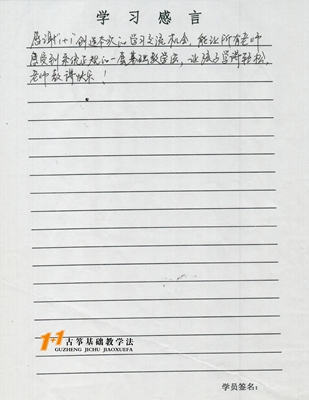 学习感言
感谢1+1创造本次的学习交流机会，能让所有老师
感受到系统正规的一展基础教学法，让孩子学得轻松，
老师教得快乐！
1+1 古筝基础教学法
GUZHENG JICHU JIAOXUEFA
学员签名：